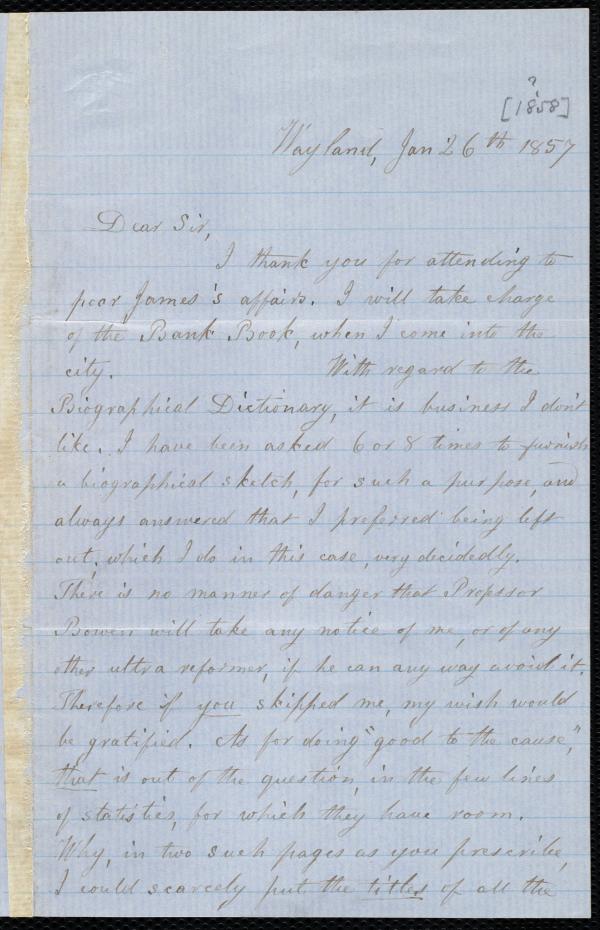 ?
[1858]
Wayland, Jan 26th 1857
Dear Sir,
I thank you for attending to
poor James's affairs. I will take charge
of the Bank Book, when I come into the
city. With regard to the
Biographical Dictionary, it is business I don't
like. I have been asked 6 or 8 times to furnish
a biographical sketch, for such a purpose, and
always answered that I preferred being left
out; which I do in this case, very decidedly.
There is no manner of danger that Professor
Bowen will take any notice of me, or of any
other ultra reformer, if he can any way avoid it.
Therefore if you skipped me, my wish would
be gratified. As for doing "good to the cause,"
that is out of the question, in the few lines
of statistics, for which they have room.
Why, in two such pages as you prescribe,
I could scarcely put the titles of all the